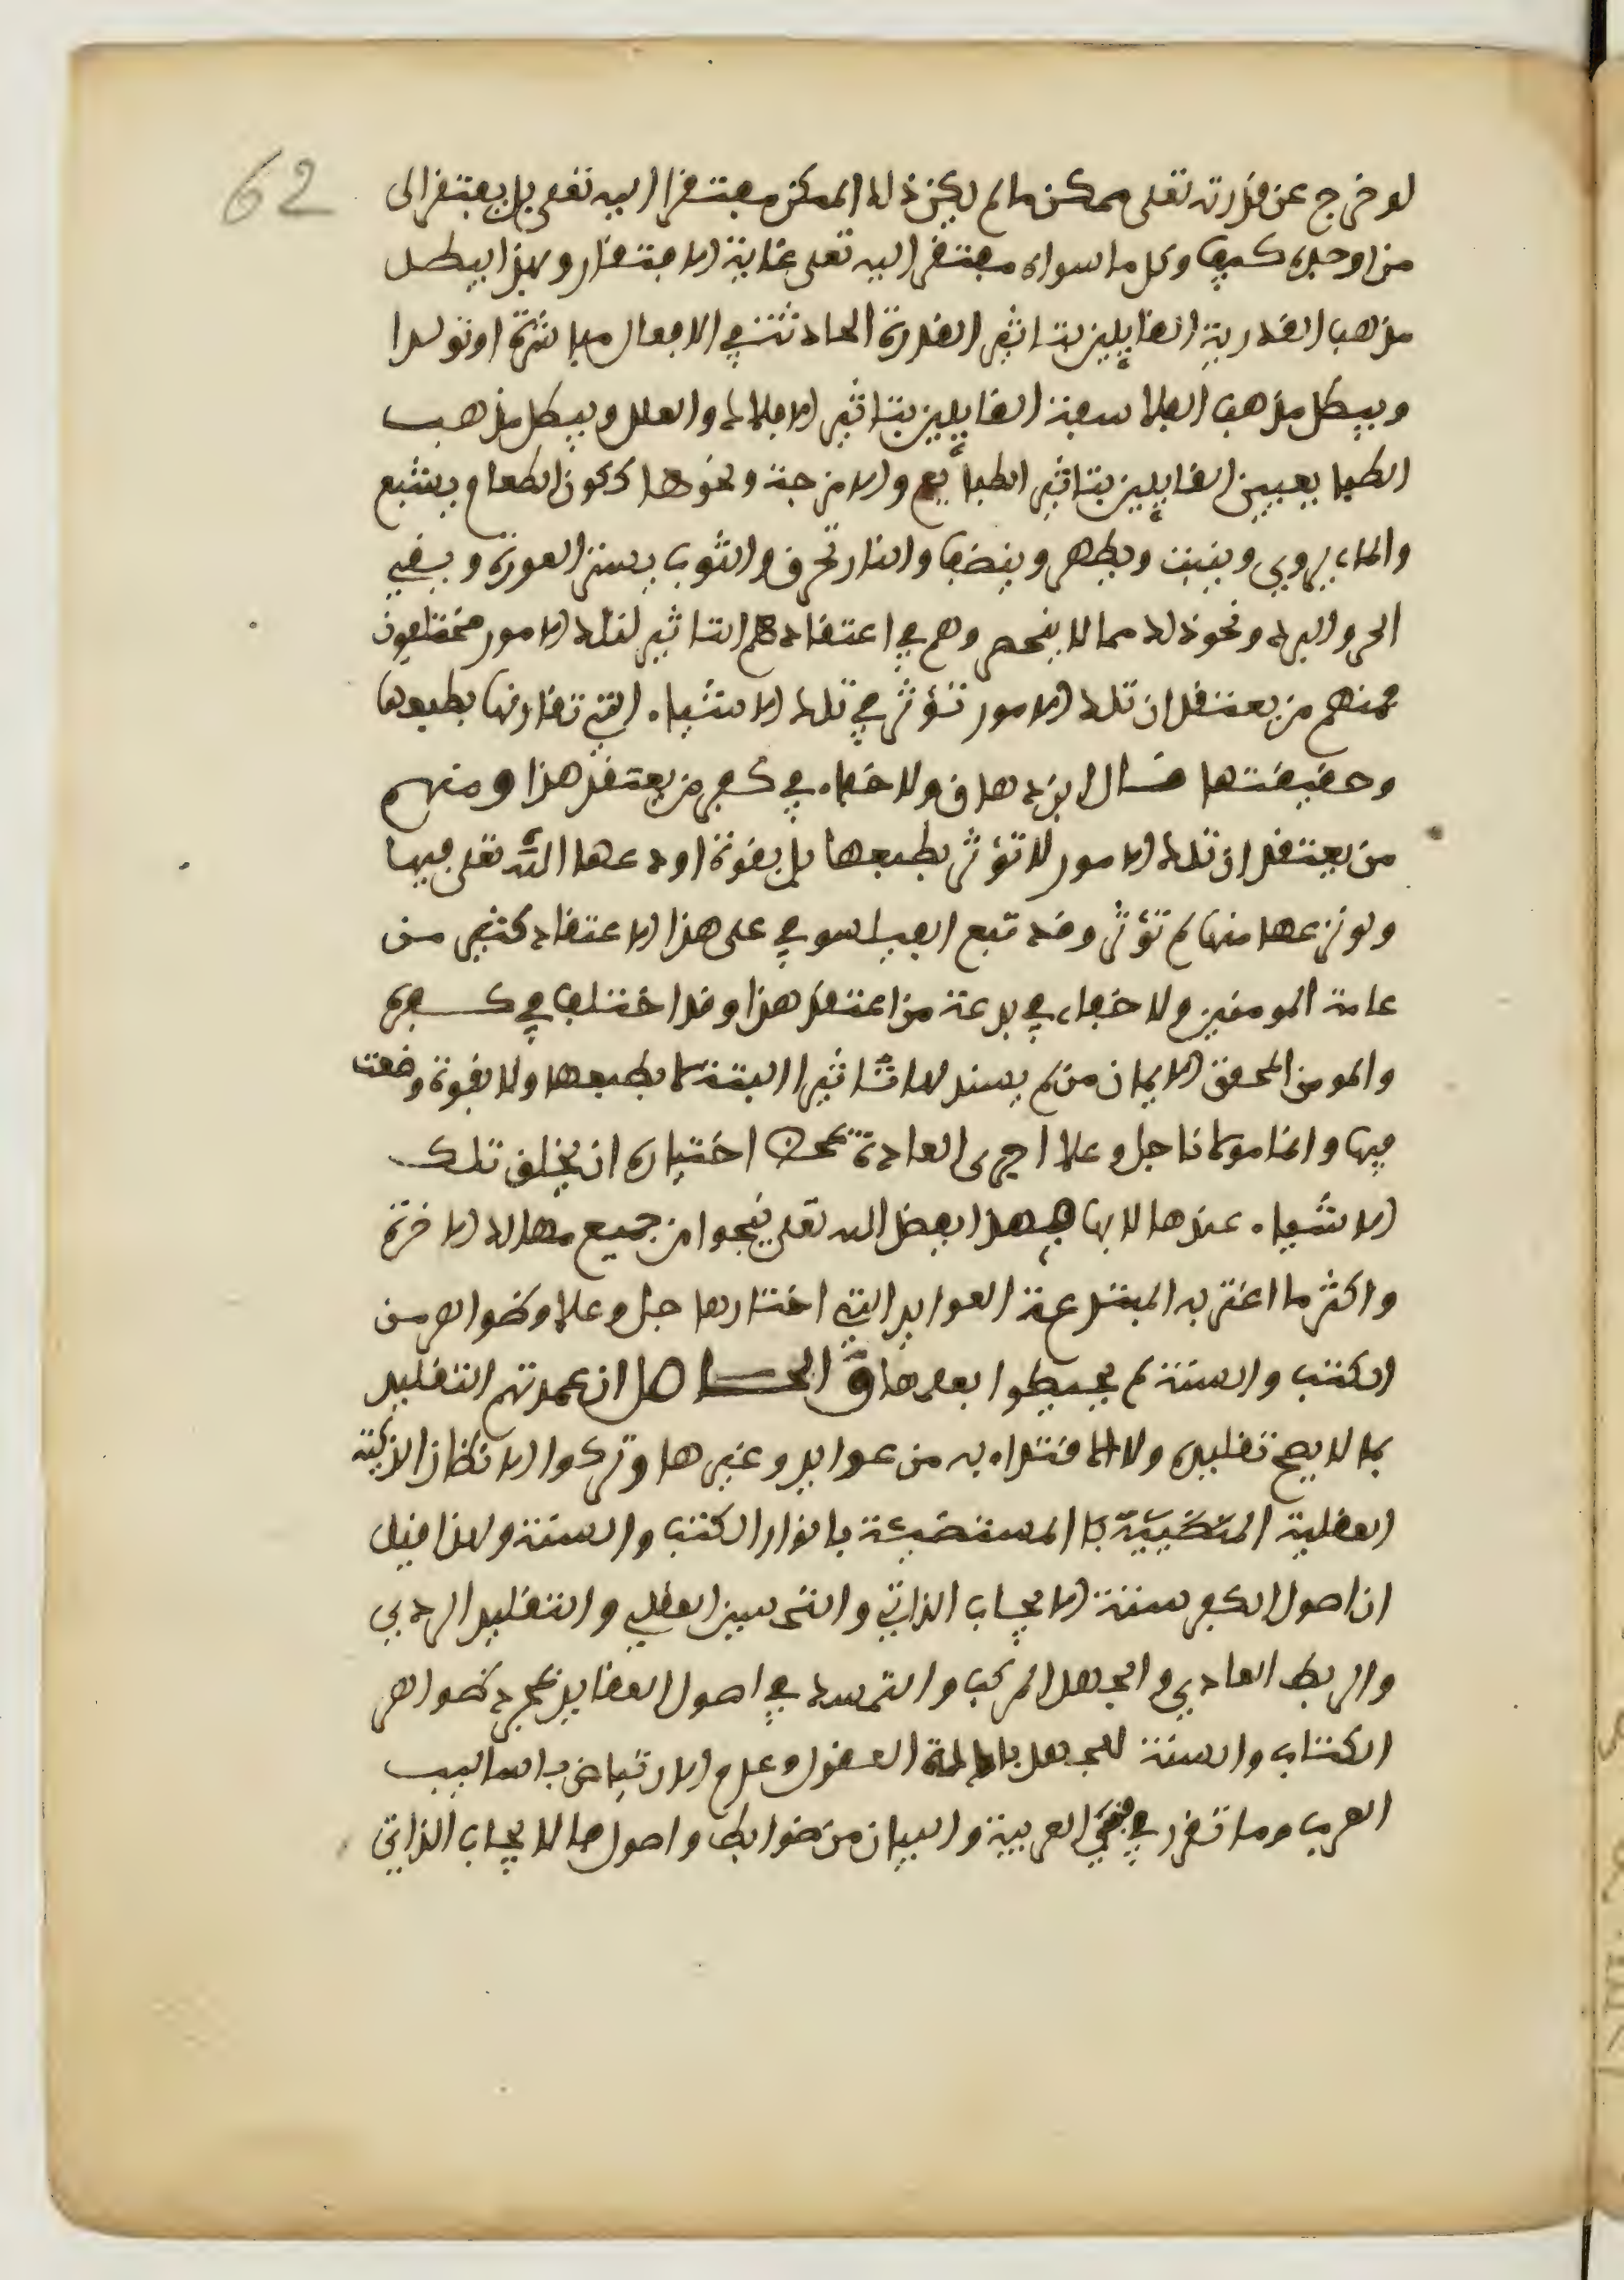 62
لو خرج عن قدرته تعلى ممكن ما لم يكن ذلك الممكن مفتقرا اليه تعلى بل يفتقر الى
من اوجده كيف وكل ما سواه مفتقر اليه تعلى غاية الافتقار وبهذا يبطل
مذهب القدرية القايلين بتاثير القدرة الحادثة في الافعال مباشرة او تولدا
ويبطل مذهب الفلاسفة القايلين بتاثير الافلاك والعلل ويبطل مذهب
الطبايعيين القايلين بتاثير الطبايع والامزجة ونحوها ككون الطعام يشبع
والماء يروي وينبت ويطهر وينظف والنار تحرق والثوب يستر العورة ويقي
الحر والبرد ونحو ذلك مما لا ينحصر وهم في اعتقادهم التاثير لتلك الامور مختلفون
فمنهم من يعتقد ان تلك الامور تؤثر في تلك الاشياء التي تقارنها بطبعها
وحقيقتها قال ابن دهاق ولا خفاء في كفر من يعتقد هذا ومنهم
من يعتقد ان تلك الامور لا تؤثر بطبعها بل بقوة اودعها الله تعلى فيها
ولو نزعها منها لم تؤثر وقد تبع الفيلسوفي على هذا الاعتقاد كثير من
عامة المومنين ولا خفاء في بدعة من اعتقد هذا وقد اختلف في كفره
والمومن المحقق الايمان من لم يسند لها تاثيرا البتة لا بطبعها ولا بقوة وضعت
فيها وانما مولانا جل وعلا اجرى العادة بمحض اختياره ان يخلق تلك
الاشياء عندها لا بها فهذا بفضل الله تعلى ينجوا من جميع مهالك الاخرة
واكثر ما اغتر به المبتدعة العوايد التي اختارها جل وعلا وظواهر من
الكتب والسنة لم يحيطوا بعلمها الحاصل ان عمدتهم التقليد
بما لا يصح تقليده من عوايد وغيرها وتركوا الانظار الزكية
العقلية المستضيئة بانوار الكتب والسنة ولهذا قيل
ان اصول الكفر ستة الايجاب الذاتي والتحسين العقلي والتقليد الردي
والربط العادي والجهل المركب والتمسك في اصول العقايد بمجرد ظواهر
الكتاب والسنة للجهل بادلة العقول وعدم الارتياض باساليب
العرب وما تقرر في فني العربية والبيان من ضوابط واصول فالايجاب الذاتي